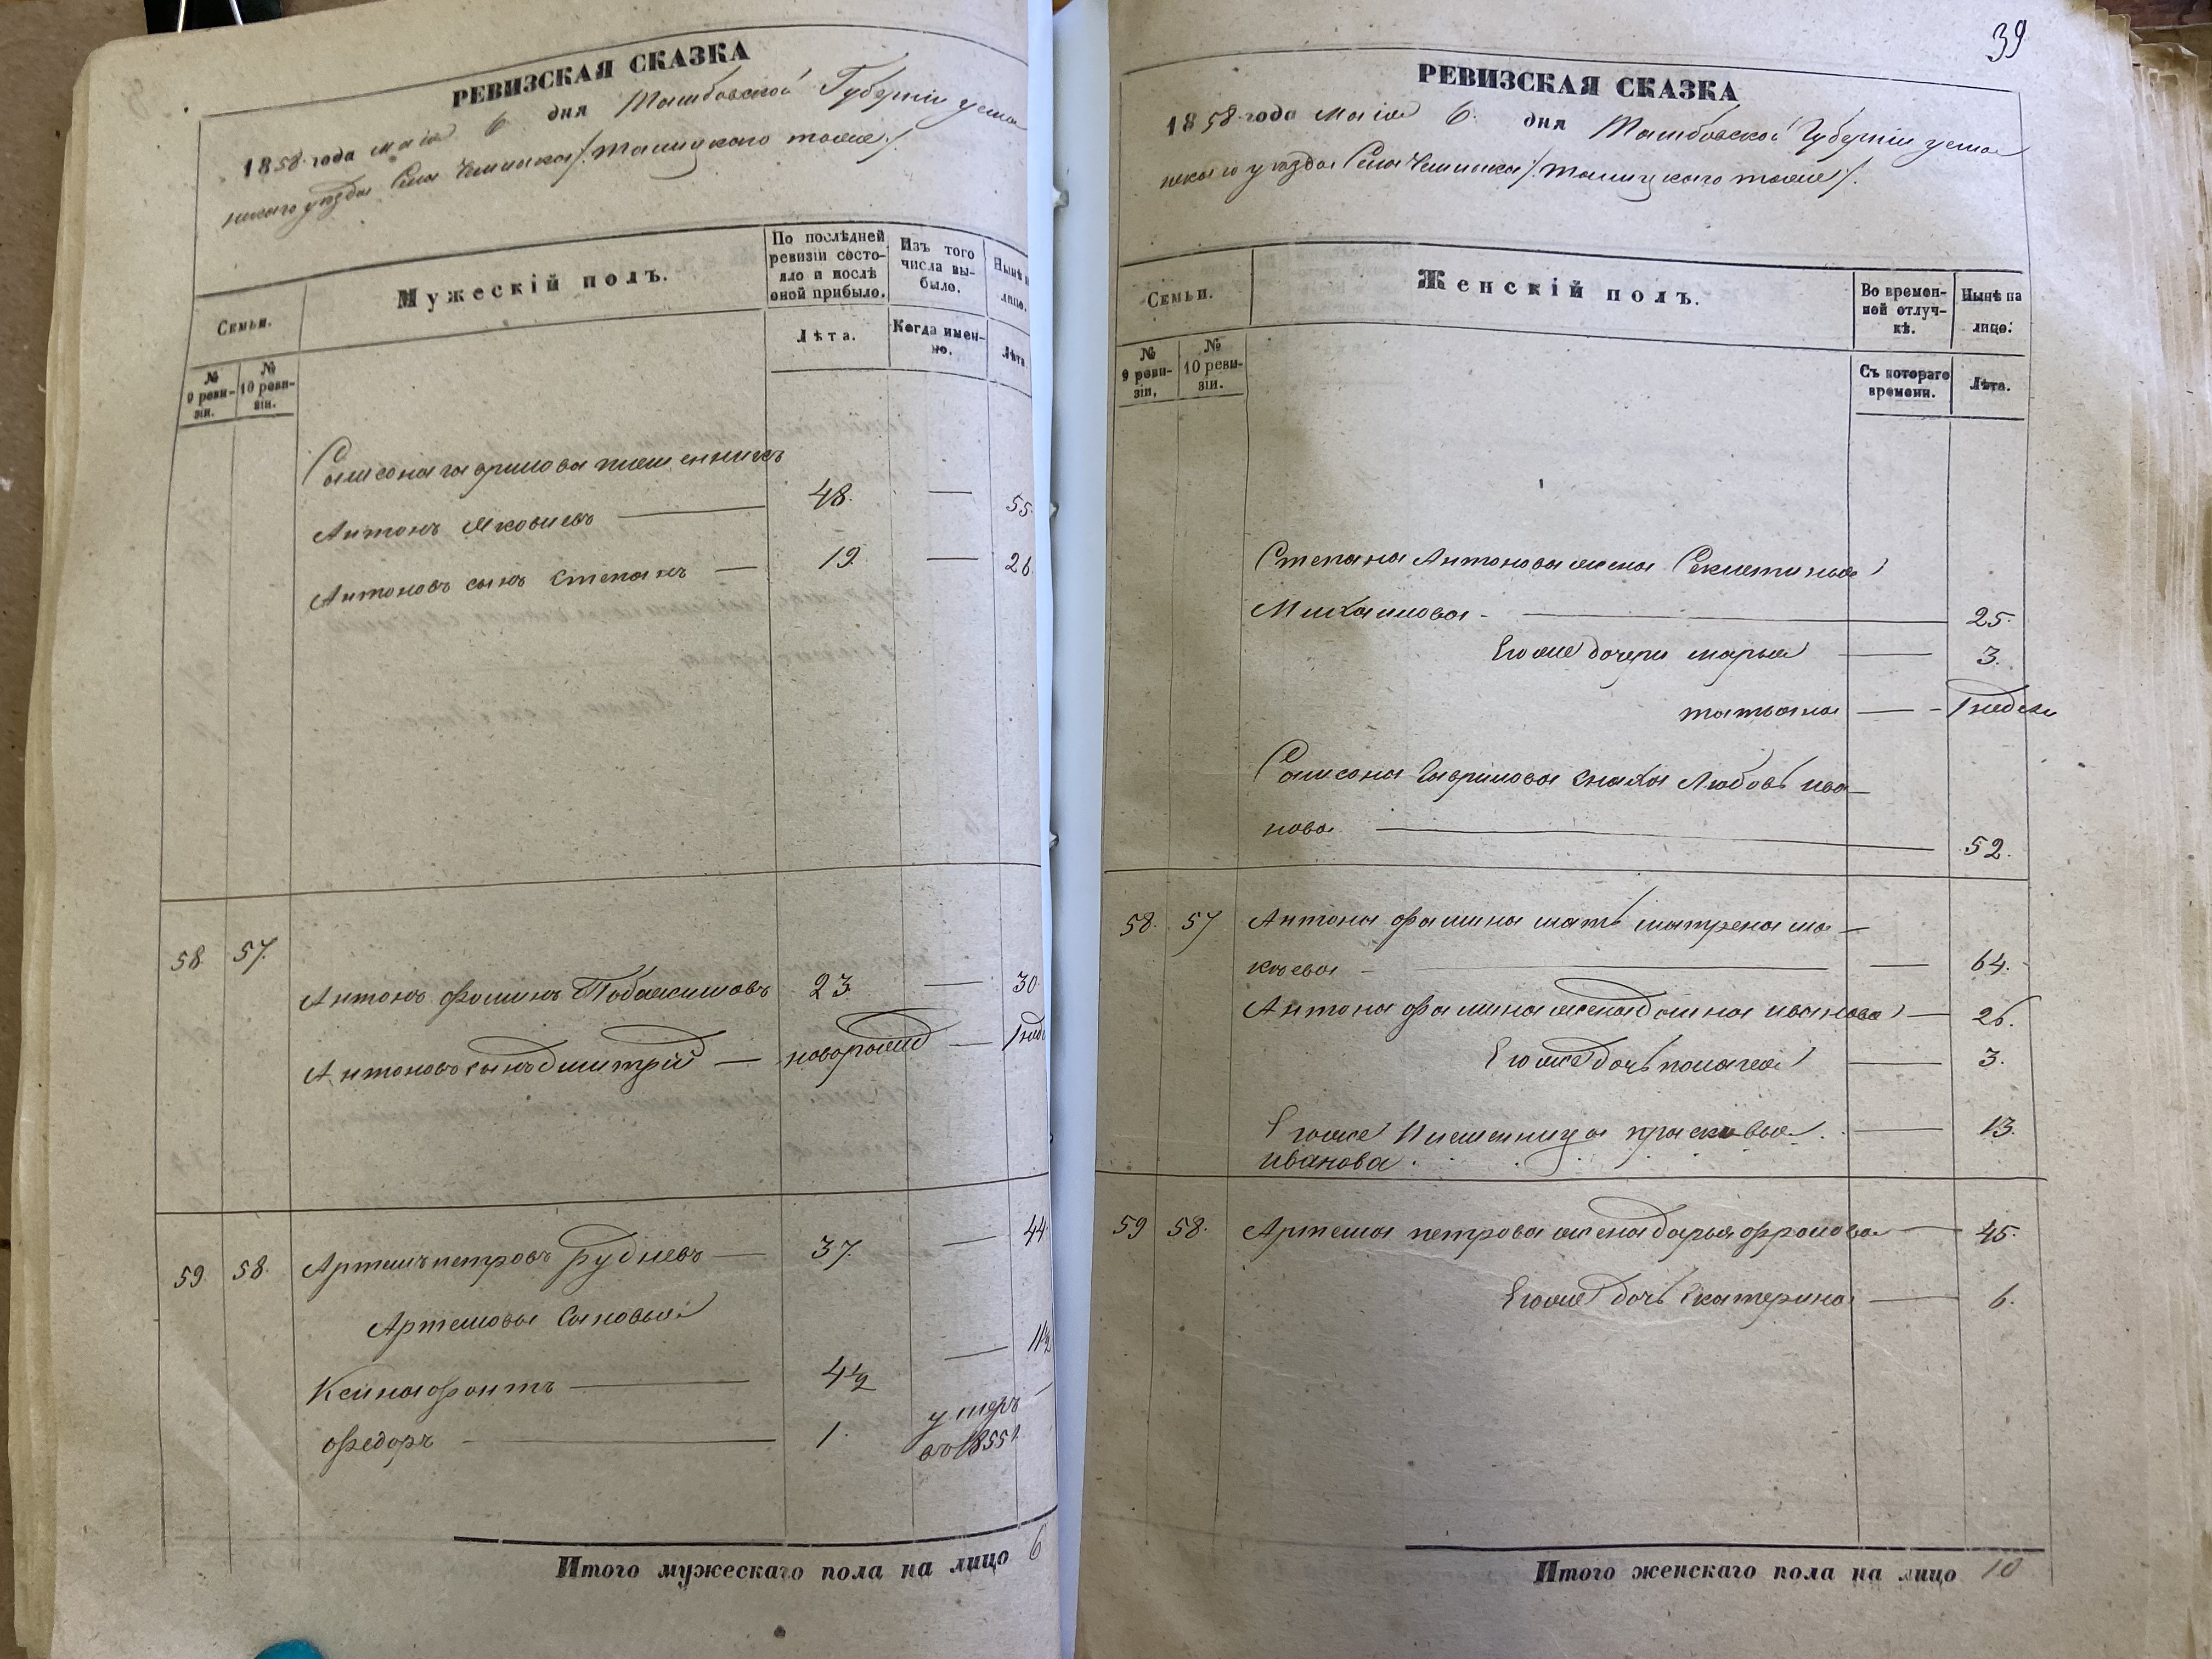 РЕВИЗСКАЯ СКАЗКА
1858 года маія 6 дня Тамбовской Губерніи усма
нскаго уѣзда Села Чемлыка /: талицкаго тоже :/
Семьи.
Мужескій полъ.
По послѣдней ревизіи состо-
яло и послѣ
оной прибыло.
Изъ того
числа вы-
было.
Нынѣ н
лицо.
Лѣта.
Когда имен-
но.
Лѣта
№
9 реви-
зіи.
№
10 реви-
зіи.
Самсона гаврилова племенникъ
Антонъ Яковлевъ 48. 55.
Антоновъ сынъ Степанъ 19. 26.
58 57.
Антонъ фоминъ 23. 30
Антоновъ сынъ дмитрій новорожд 1 нед
59. 58. Артемъ петровъ рудневъ 37. 44
Артемовы Сыновья
Ксинафонтъ 4½ 11½
федоръ 1. умеръ
въ 1855 г.
Итого мужескаго пола на лицо 6
39
РЕВИЗСКАЯ СКАЗКА
1858 года маія 6. дня Тамбовской Губерніи усма
нскаго уѣзда Села Чемлыка /: талицкаго тоже :/.
Семьи.
Женскій полъ.
Во времен-
ной отлуч-
кѣ.
Нынѣ на
лицо.
№
9 реви-
зіи.
№
10 реви-
зіи.
Съ котораго
времени.
Лѣта.
Степана Антонова жена Секлетинья
Михаилова - 25.
Егоже дочери марья 3.
татьяна 1 недели
Самсона Гаврилова сноха Любовь ива
нова 52.
58. 57 Антона фамина мать матрена мо
кѣева 64.
Антона фамина жена домна иванова 26.
Егоже дочь полагея 3.
Егоже Племенница прасковья 13.
иванова.
59 58. Артема петрова жена дарья фролова 45.
Егоже дочь Екатерина 6.
Итого женскаго пола на лицо 10